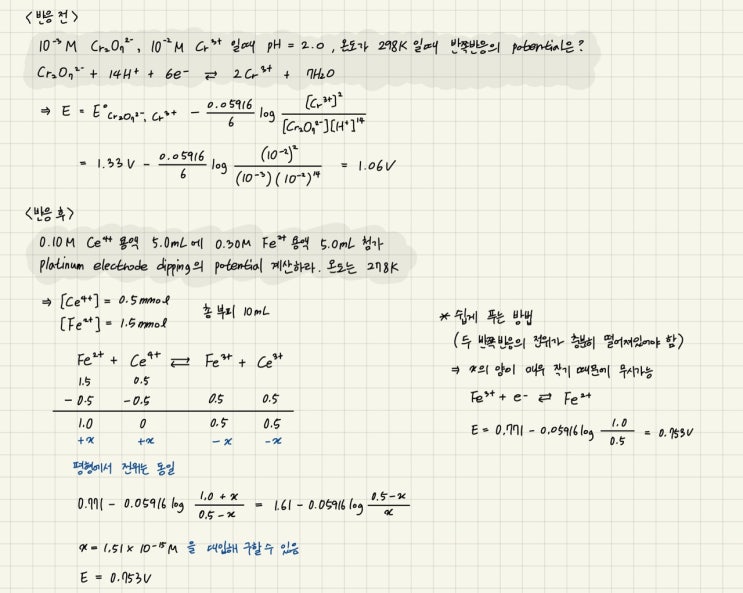 <반응 전>
10⁻³ M Cr₂O₇²⁻, 10⁻² M Cr³⁺ 일때 pH = 2.0, 온도가 298K 일때 반쪽반응의 potential은?
Cr₂O₇²⁻ + 14H⁺ + 6e⁻ ⇄ 2Cr³⁺ + 7H₂O
⇒ E = E°Cr₂O₇²⁻, Cr³⁺ - 0.05916/6 log [Cr³⁺]²/[Cr₂O₇²⁻][H⁺]¹⁴
= 1.33 V - 0.05916/6 log (10⁻²)²/(10⁻³)(10⁻²)¹⁴ = 1.06V
<반응 후>
0.10M Ce⁴⁺ 용액 5.0mL에 0.30M Fe²⁺ 용액 5.0mL 첨가
Platinum electrode dipping의 potential 계산하라. 온도는 298K
⇒ [Ce⁴⁺] = 0.5mmol
[Fe²⁺] = 1.5mmol
총 부피 10mL
Fe²⁺ + Ce⁴⁺ ⇄ Fe³⁺ + Ce³⁺
1.5 0.5
-0.5 -0.5 0.5 0.5
1.0 0 0.5 0.5
+x +x -x -x
평형에서 전위는 동일
0.771 - 0.05916 log 1.0 + x/0.5 - x = 1.61 - 0.05916 log 0.5 - x/x
x = 1.51 × 10⁻¹⁵ M 을 대입해 구할 수 있음
E = 0.753V
* 쉽게 푸는 방법
(두 반쪽반응의 전위가 충분히 떨어져있어야 함)
⇒ x의 양이 매우 작기 때문에 무시가능
Fe³⁺ + e⁻ ⇄ Fe²⁺
E = 0.771 - 0.05916 log 1.0/0.5 = 0.753V